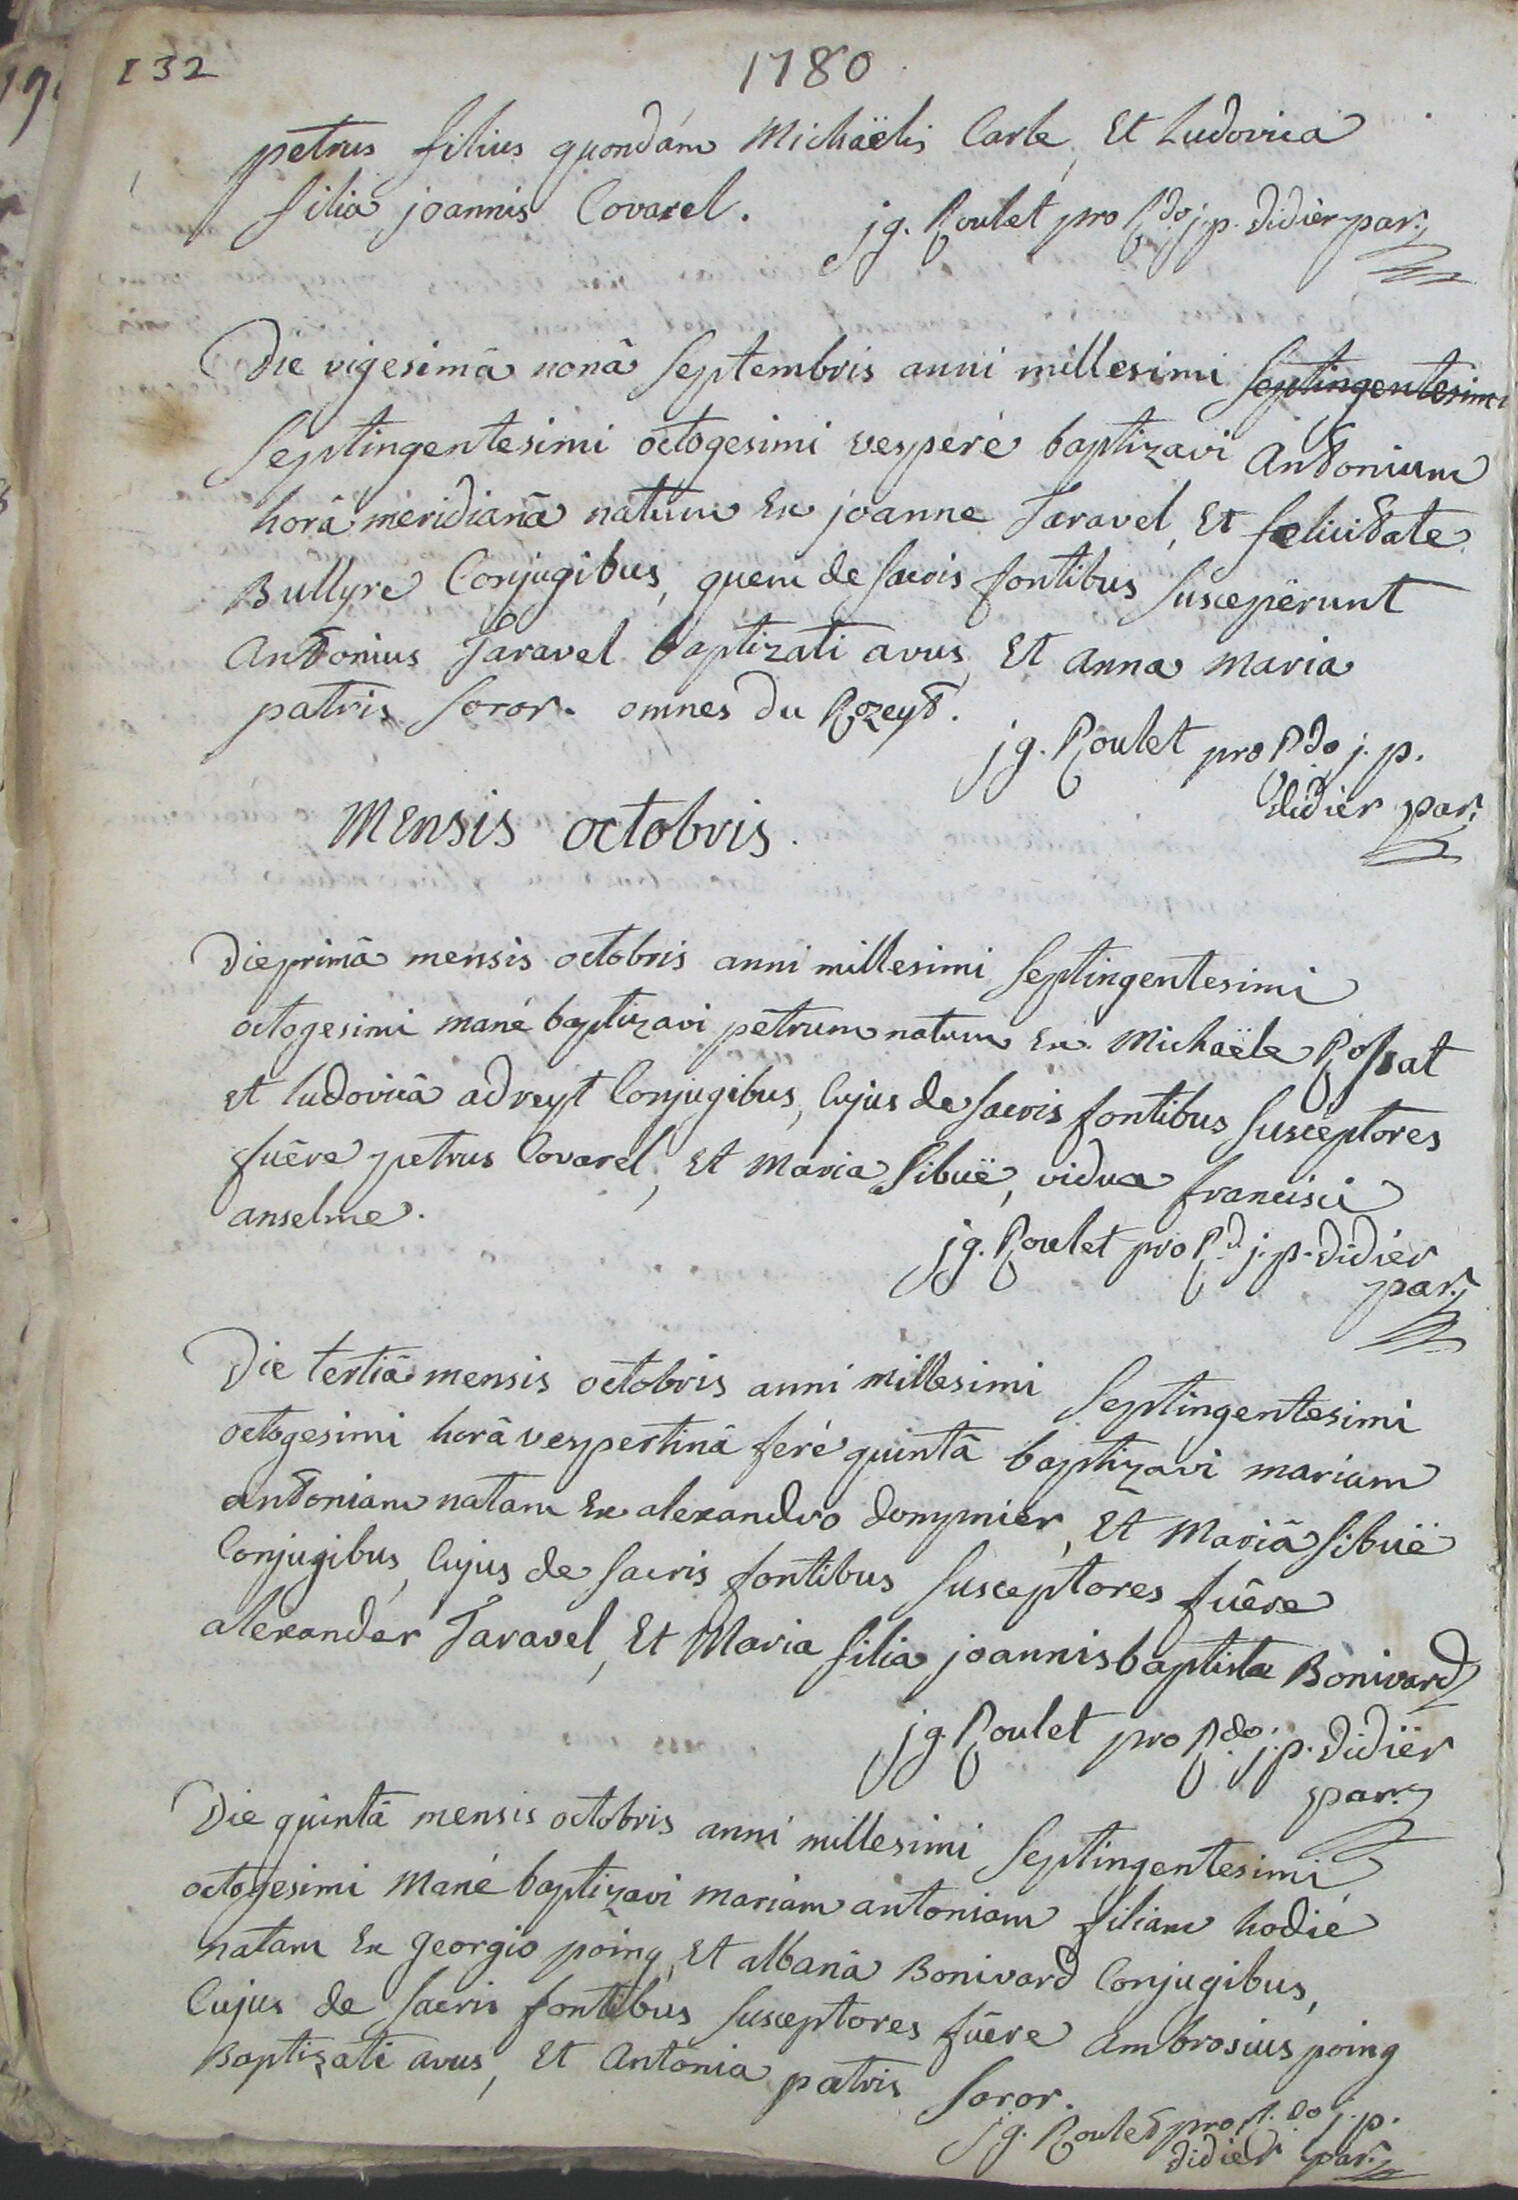 132
1780
petrus filius quondám Michaëlis Carle, Et Ludovica
filia joannis Covarel.
jg. Roulet pro Rdo j.p. didier par.
Die vigesimâ nonâ Septembris anni millesimi Septingentesimi
Septingentesimi octogesimi vesperé baptizavi Antonium
horâ meridianâ natum Ex joanne Taravel, Et felicitate
Bullyre Conjugibus, quem de Sacris fontibus Suscepêrunt
Antonius Taravel baptizati avus, Et anna maria
patris Soror. omnes du Rozeyt.
jg. Roulet pro Rdo j. p.
didier par.
Mensis octobris.
Die primâ mensis octobris anni millesimi Septingentesimi
octogesimi mané baptizavi petrum natum Ex Michaële Rossat
et ludovicâ adveyt Conjugibus, Cujus de Sacris fontibus Susceptores
fuêre petrus Covarel, Et Maria Sibuë, vidua francisci
anselme.
jg. Roulet pro Rd. j. p. didier
par.
Die tertiâ mensis octobris anni millesimi Septingentesimi
octogesimi horâ vespertinâ feré quintâ baptizavi mariam
antoniam natam Ex alexandro dompnier, Et Mariâ Sibuë
Conjugibus, Cujus de Sacris fontibus Susceptores fuêre
alexander Taravel, Et Maria filia joannis baptista Bonivard
jg. Roulet pro Rdo. j. p. didiër
par.
Die quintâ mensis octobris anni millesimi Septingentesimi
octogesimi Mané baptizavi mariam antoniam filiam hodié
natam Ex georgio poing, Et albanâ Bonivard Conjugibus,
Cujus de Sacris fontibus Susceptores fuêre ambrosius poing
Baptizati avus, Et Antonia patris Soror.
jg. Roulet pro R.do j. p.
didier par.